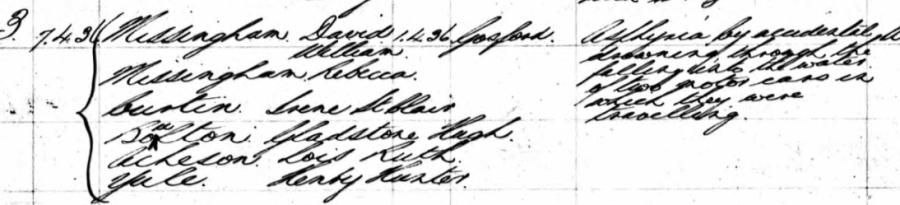 3 7.4.36 Missingham David 1.4.36. Gosford. Asphyxia by accidental
William drowning through the
Missingham Rebecca. falling into the water
Curtin Irene St Clair of two motor cars in
Bolton Gladstone Hugh. which they were
Acheson Lois Ruth. travelling.
Yule. Henry Hunter.